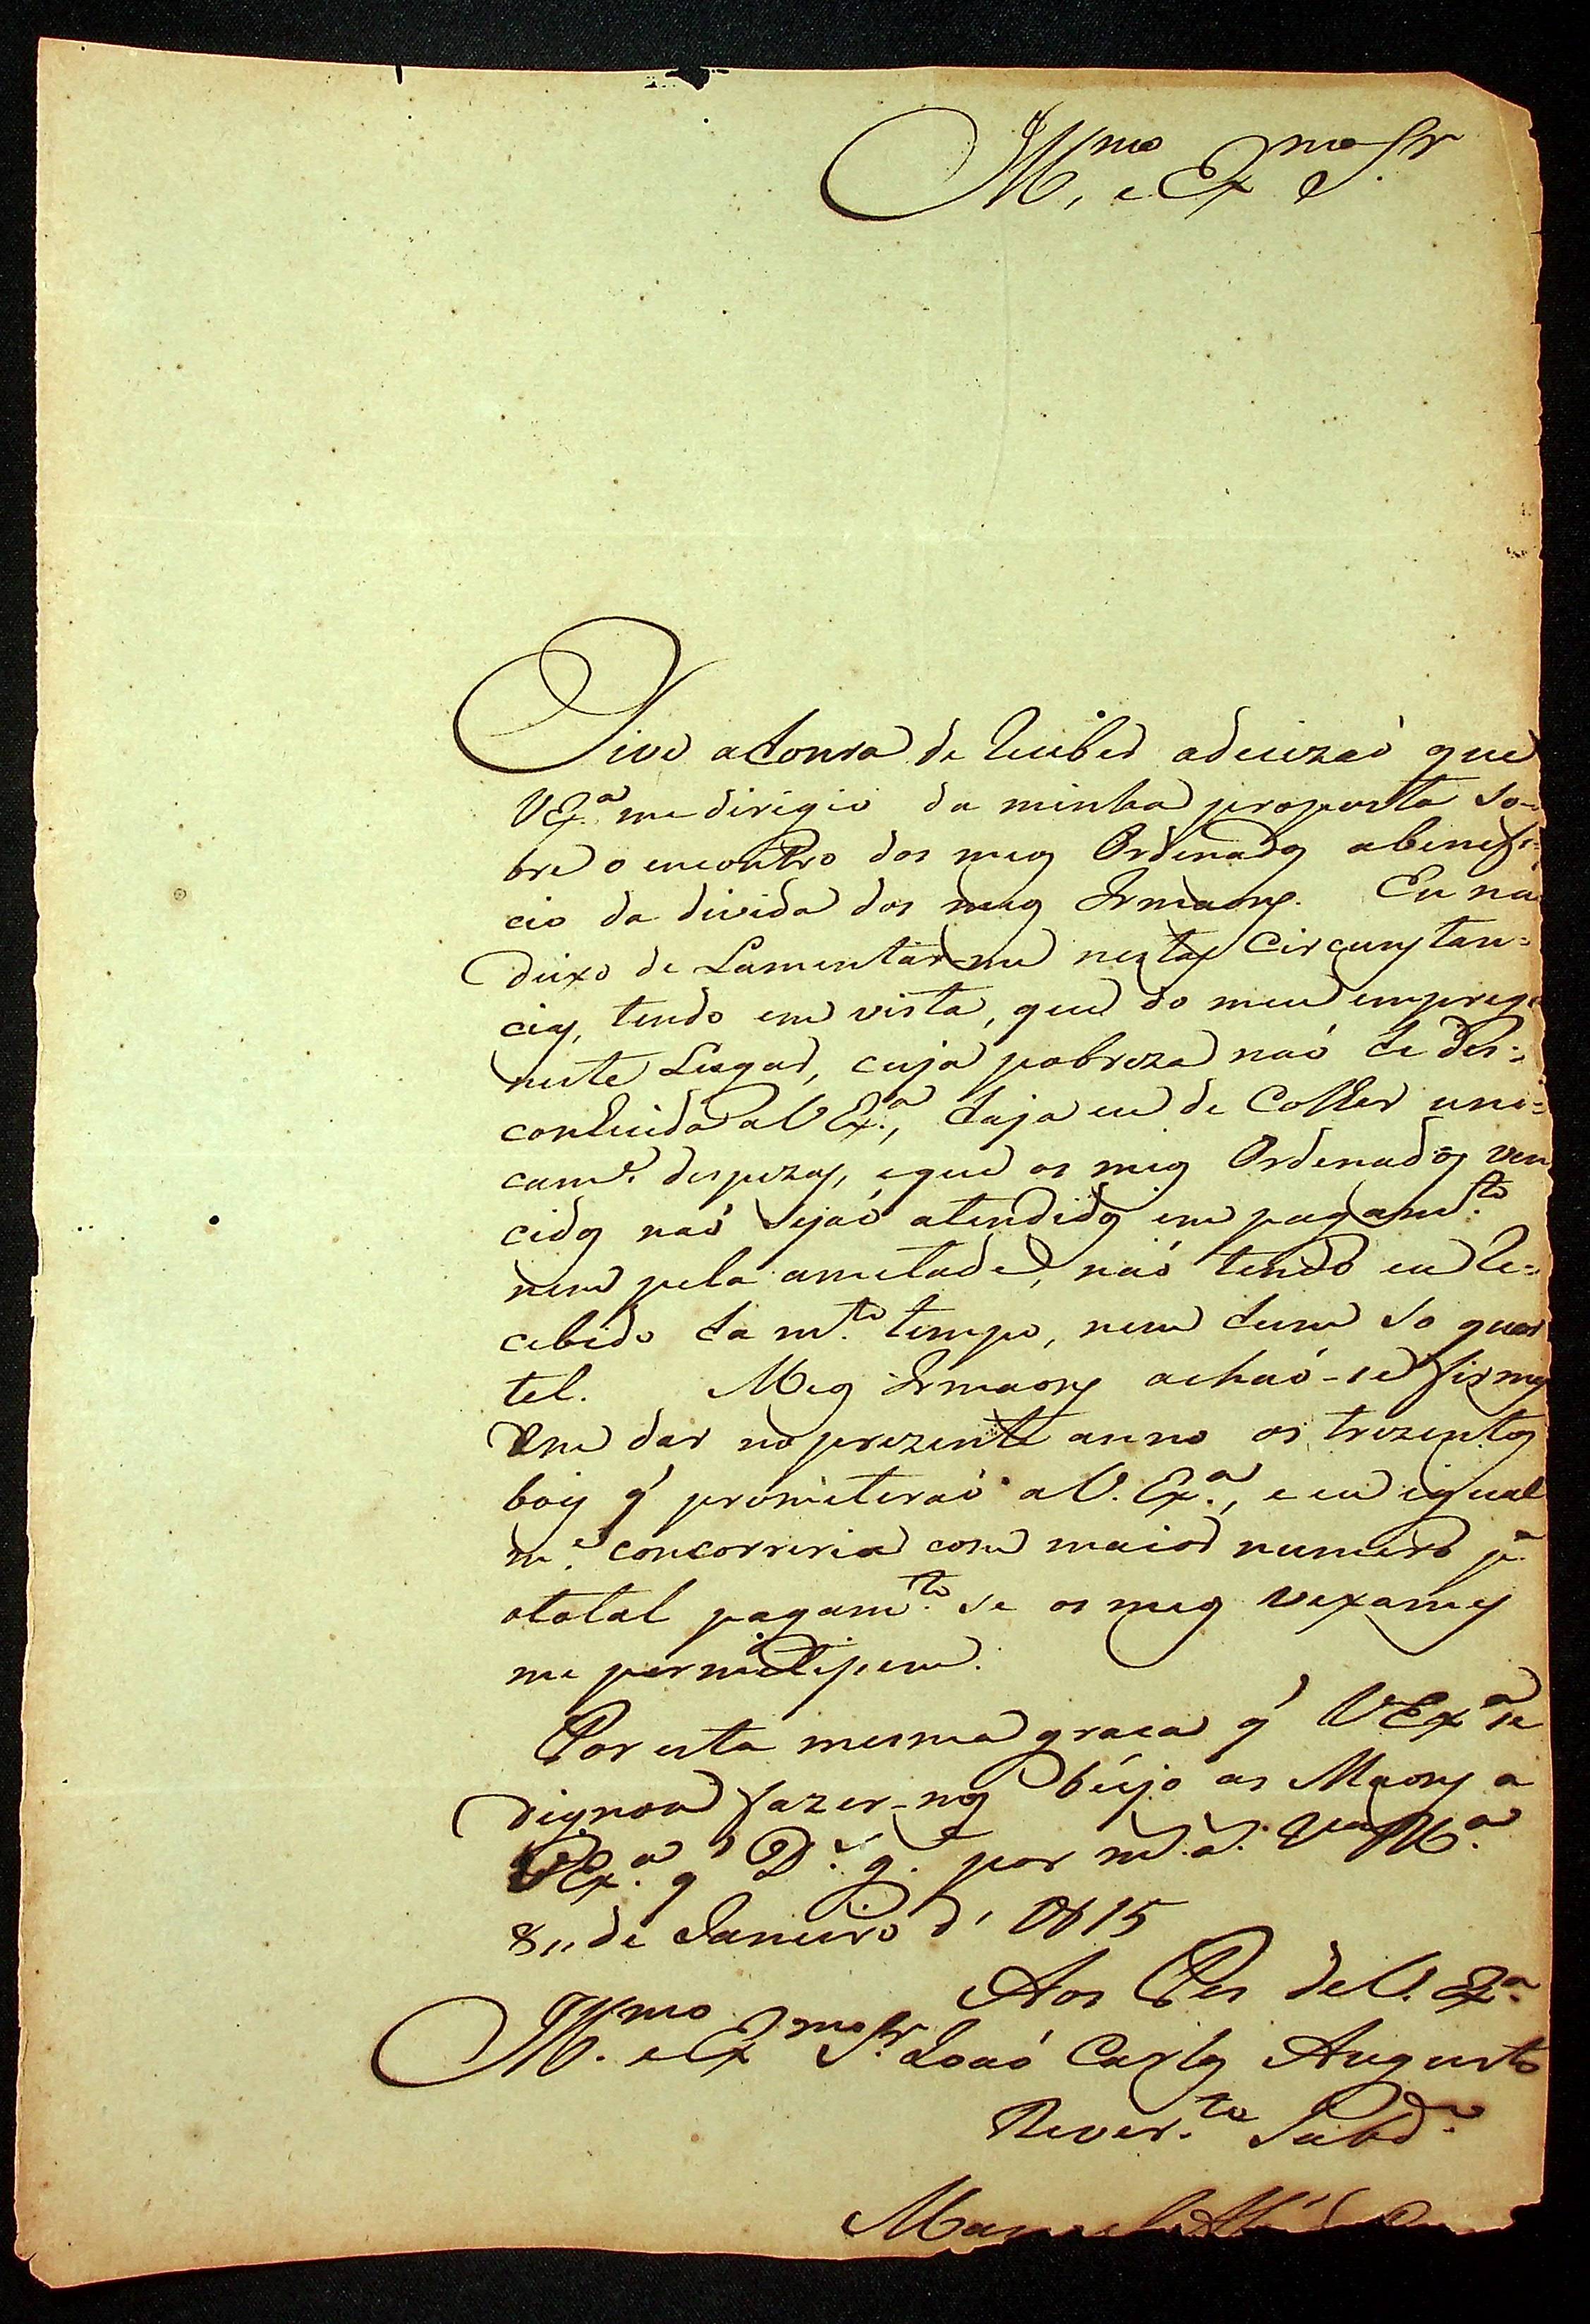 Ill.mo, e Ex.mo Sr.
Tive a honra de receber a decizaõ que
VEx.a me dirigio da minha proposta so-
bre o encontro dos meus Ordenados a benefi-
cio da divida dos meus Irmaons. Eu naõ
deixo de Lamentar-me nestas circunstan=
cias, tendo em vista, que do meu emprego
neste Lugar, cuja pobreza naõ he des=
conhecida a VEx.a, haja eu de Colher uni=
cam.e despezas, e que os meus Ordenados ven
cidos naõ sejaõ atendidos em pagam.to
nem pela ametade, naõ tendo eu re=
cebido ha m.to tempo, nem hum so quar
tel. Meus Irmaons achaõ-se firmes
em dar no prezente anno os trezentos
bois q' prometeraõ a V. Ex.a, e eu igual
m.e concorreria com maior numero p.a
o total pagam.to se os meus vexames
me permitissem.
Por esta mesma graca q' VEx.a se
dignou fazer-nos beijo as Maons a
VEx.a q' D.s g.e por m.s a.s
8,, de Janeiro d' 1815
Aos Pes de V. Ex.a
Ill.mo e Ex.mo Sr. Joaõ Carlos Augusto
Rever.te Subd.o
Manoel